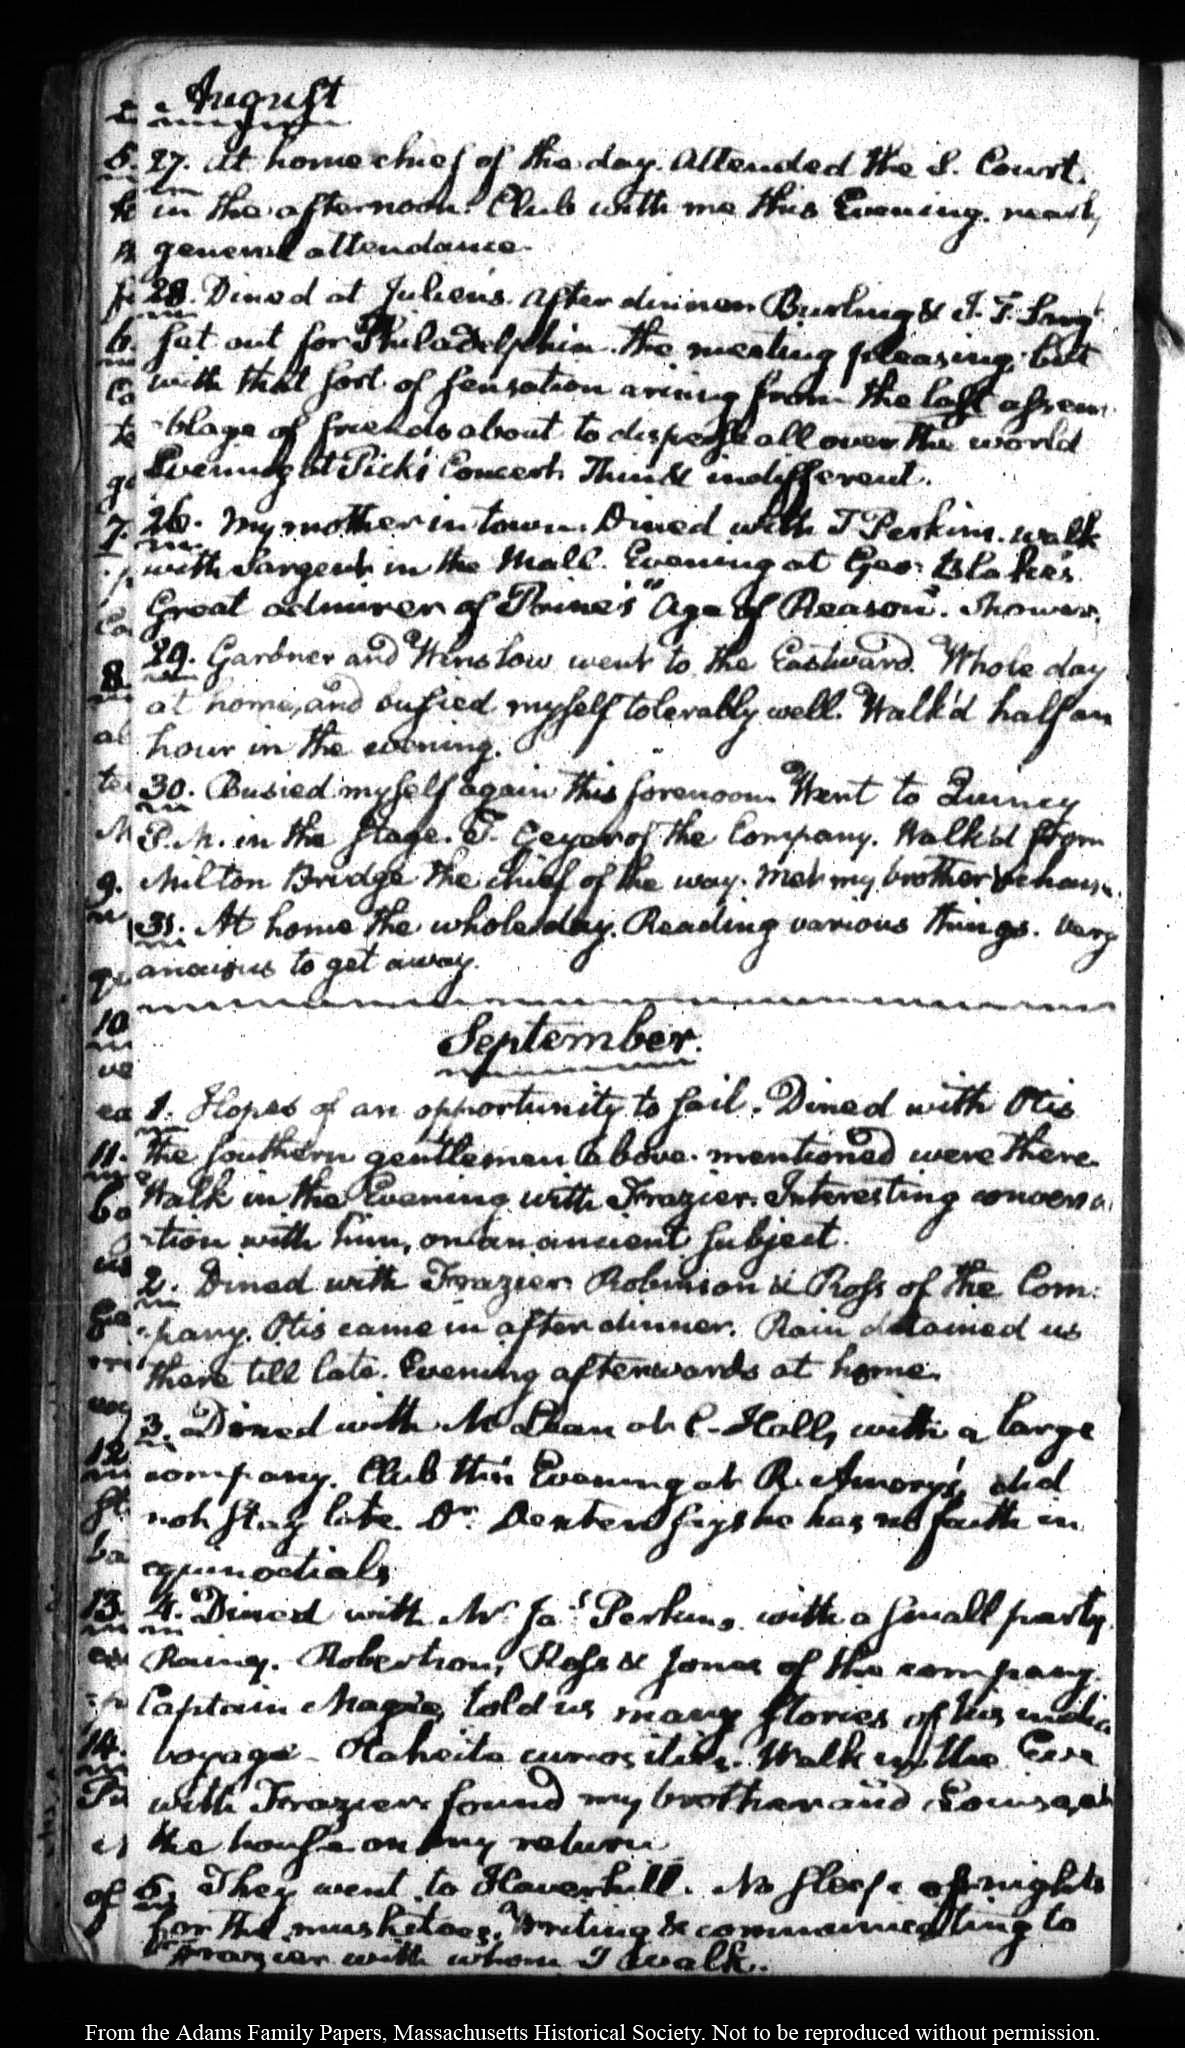 August
27. At home chief of the day. Attended the S. Court.
in the afternoon. Club with me this Evening. nearly
general attendance.
28. Dined at Julien's. After dinner Burling & I. T.
set out for Philadelphia. the meeting pleasing, but
with that sort of sensation arising from the last assem
-blage of friends about to disperse all over the world
Evening at Pick's Concert. Thin & indifferent.
26. My mother in town. Dined with T Perkins. walk
with Sargent in the Mall. Evening at Geo: Blake's
Great admirer of Paine's "Age of Reason". Shower.
29. Gardner and Winslow went to the Eastward. Whole day
at home, and busied myself tolerably well. Walk'd half an
hour in the evening.
30. Busied myself again this forenoon. Went to Quincy
P.M. in the stage. of the Company. Walk'd from
Milton Bridge the chief of the way. Met my brother
31. At home the whole day. Reading various things. very
anxious to get away.
September.
1. Hopes of an opportunity to sail. Dined with Otis
the southern gentlemen above mentioned were there.
Walk in the Evening with Frazier. Interesting conversa
-tion with him, on an ancient subject.
2. Dined with Frazier. Robinson & Ross of the Com:
-pany. Otis came in after dinner. Rain detained us
there till late. Evening afterwards at home.
3. Dined with McLean at C-Hall, with a large
company. Club this Evening at R. Amory's, did
not stay late. Dr. Dexter says he has no faith in
equinoctials
4. Dined with Mr. Jas. Perkins with a small party.
Rainy. Robertson, Ross & Jones of the company.
Captain Magee, told us many stories of his
voyage - Otaheite curiosities. Walk in the Eve
with Frazier found my brother and Louisa, at
the house on my return.
5. They went to Haverhill. No sleep of nights
for the musketoes. Writing & communicating to
Frazier with whom I walk.
From the Adams Family Papers, Massachusetts Historical Society. Not to be reproduced without permission.